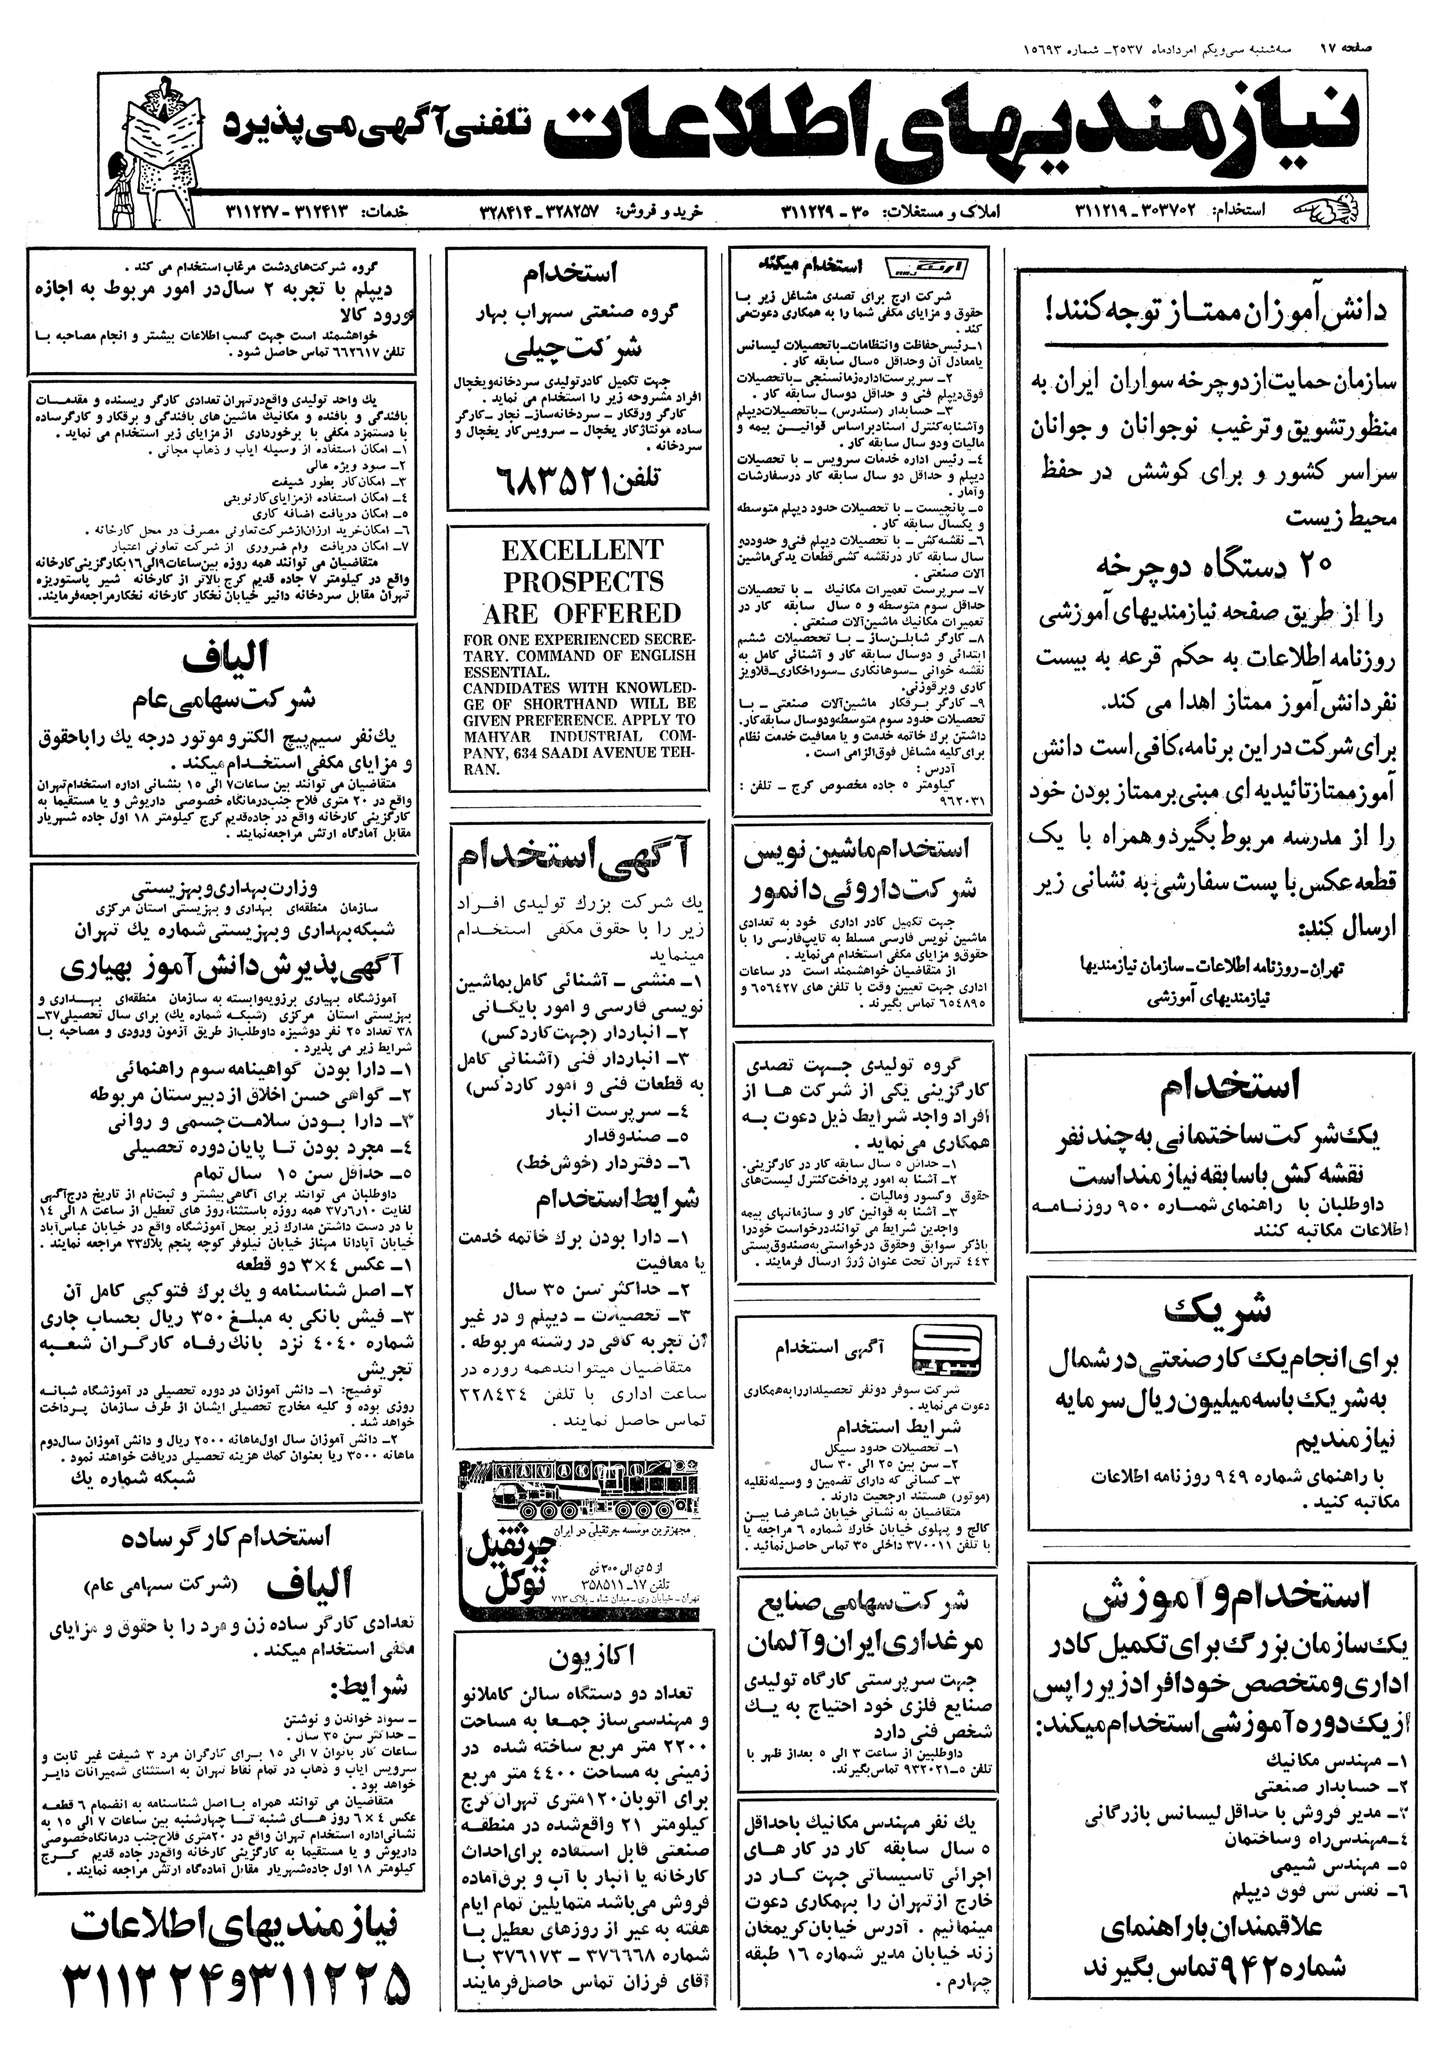 صفحه ۱۷
سه‌شنبه سی‌ویکم امردادماه ۲۵۳۷ــ شماره ۱۵۶۹۳
نیازمندیهای اطلاعات تلفنی آگهی می‌پذیرد
استخدام: ۳۰۳۷۰۲ ــ ۳۱۱۲۱۹
املاک و مستغلات: ۳۰ ــ ۳۱۱۲۲۹
خرید و فروش: ۳۲۸۲۵۷ــ۳۲۸۴۱۴
خدمات: ۳۱۲۴۱۳ــ۳۱۱۲۳۷
دانش‌آموزان ممتاز توجه کنند!
سازمان حمایت از دوچرخه سواران ایران به
منظور تشویق و ترغیب نوجوانان و جوانان
سراسر کشور و برای کوشش در حفظ
محیط زیست
۲۰ دستگاه دوچرخه
را از طریق صفحه نیازمندیهای آموزشی
روزنامه اطلاعات به حکم قرعه به بیست
نفر دانش آموز ممتاز اهدا می کند.
برای شرکت در این برنامه، کافی است دانش
آموز ممتاز تائیدیه ای مبنی بر ممتاز بودن خود
را از مدرسه مربوط بگیرد و همراه با یک
قطعه عکس با پست سفارشی به نشانی زیر
ارسال کند:
تهران ــ روزنامه اطلاعات ــ سازمان نیازمندیها
نیازمندیهای آموزشی
استخدام
یک شرکت ساختمانی به چند نفر
نقشه کش با سابقه نیازمند است
داوطلبان با راهنمای شماره ۹۵۰ روزنامه
اطلاعات مکاتبه کنند
شریک
برای انجام یک کار صنعتی در شمال
به شریک با سه میلیون ریال سرمایه
نیازمندیم
با راهنمای شماره ۹۴۹ روزنامه اطلاعات
مکاتبه کنید .
استخدام و آموزش
یک سازمان بزرگ برای تکمیل کادر
اداری و متخصص خود افراد زیر را پس
از یک دوره آموزشی استخدام میکند:
۱ــ مهندس مکانیک
۲ــ حسابدار صنعتی
۳ــ مدیر فروش با حداقل لیسانس بازرگانی
۴ــ مهندس راه وساختمان
۵ــ مهندس شیمی
۶ــ نقش کش فوق دیپلم
علاقمندان با راهنمای
شماره ۹۴۲ تماس بگیرند
ارج استخدام میکند
شرکت ارج برای تصدی مشاغل زیر با
حقوق و مزایای مکفی شما را به همکاری دعوت می
کند .
۱ــ رئیس حفاظت وانتظامات ــ با تحصیلات لیسانس
یا معادل آن وحداقل ۵ سال سابقه کار .
۲ــ سرپرست اداره زمانسنجی ــ با تحصیلات
فوق دیپلم فنی و حداقل دو سال سابقه کار .
۳ــ حسابدار (سندرس) ــ با تحصیلات دیپلم
و آشنا به کنترل اسناد بر اساس قوانین بیمه و
مالیات و دو سال سابقه کار .
۴ــ رئیس اداره خدمات سرویس ــ با تحصیلات
دیپلم و حداقل دو سال سابقه کار در سفارشات
و آمار .
۵ــ پانچیست ــ با تحصیلات حدود دیپلم متوسطه
و یکسال سابقه کار .
۶ــ نقشه کش ــ با تحصیلات دیپلم فنی و حدود دو
سال سابقه کار در نقشه کشی قطعات یدکی ماشین
آلات صنعتی .
۷ــ سرپرست تعمیرات مکانیک ــ با تحصیلات
حداقل سوم متوسطه و ۵ سال سابقه کار در
تعمیرات مکانیک ماشین آلات صنعتی .
۸ــ کارگر شابلن ساز ــ با تحصیلات ششم
ابتدائی و دو سال سابقه کار و آشنائی کامل به
نقشه خوانی ــ سوهانکاری ــ سوراخکاری ــ قلاویز
کاری و برقوزنی.
۹ــ کارگر برقکار ماشین آلات صنعتی ــ با
تحصیلات حدود سوم متوسطه ودوسال سابقه کار.
داشتن برگ خاتمه خدمت و یا معافیت خدمت نظام
برای کلیه مشاغل فوق الزامی است .
آدرس :
کیلومتر ۵ جاده مخصوص کرج ــ تلفن :
۹۶۲۰۳۱
استخدام ماشین نویس
شرکت داروئی دانمور
جهت تکمیل کادر اداری خود به تعدادی
ماشین نویس فارسی مسلط به تایپ فارسی را با
حقوق و مزایای مکفی استخدام می نماید.
از متقاضیان خواهشمند است در ساعات
اداری جهت تعیین وقت با تلفن های ۶۵۶۴۲۷ و
۶۵۴۸۹۵ تماس بگیرند .
گروه تولیدی جهت تصدی
کارگزینی یکی از شرکت ها از
افراد واجد شرایط ذیل دعوت به
همکاری می نماید .
۱ــ حداقل ۵ سال سابقه کار در کارگزینی.
۲ــ آشنا به امور پرداخت کنترل لیست های
حقوق و کسور و مالیات .
۳ــ آشنا به قوانین کار و سازمانهای بیمه
واجدین شرایط می توانند درخواست خود را
با ذکر سوابق وحقوق درخواستی به صندوق پستی
۴۴۳ تهران تحت عنوان ژرژ ارسال فرمایند .
سوفر
آگهی استخدام
شرکت سوفر دو نفر تحصیلدار را به همکاری
دعوت می نماید .
شرایط استخدام
۱ــ تحصیلات حدود سیکل
۲ــ سن بین ۲۵ الی ۳۰ سال
۳ــ کسانی که دارای تضمین و وسیله نقلیه
(موتور) هستند ارجحیت دارند .
متقاضیان به نشانی خیابان شاهرضا بین
کالج و پهلوی خیابان خارک شماره ۶ مراجعه یا
با تلفن ۳۷۰۰۱۱ داخلی ۳۵ تماس حاصل نمائید .
شرکت سهامی صنایع
مرغداری ایران و آلمان
جهت سرپرستی کارگاه تولیدی
صنایع فلزی خود احتیاج به یک
شخص فنی دارد
داوطلبین از ساعت ۳ الی ۵ بعد از ظهر با
تلفن ۵ــ۹۳۲۰۲۱ تماس بگیرند.
یک نفر مهندس مکانیک با حداقل
۵ سال سابقه کار در کار های
اجرائی تاسیساتی جهت کار در
خارج از تهران را بهمکاری دعوت
مینمائیم . آدرس خیابان کریمخان
زند خیابان مدیر شماره ۱۶ طبقه
چهارم .
استخدام
گروه صنعتی سهراب بهار
شرکت چیلی
جهت تکمیل کادر تولیدی سردخانه و یخچال
افراد مشروحه زیر را استخدام می نماید .
کارگر ورقکار ــ سردخانه ساز ــ نجار ــ کارگر
ساده مونتاژکار یخچال ــ سرویس کار یخچال و
سردخانه .
تلفن ۶۸۳۵۲۱
EXCELLENT
PROSPECTS
ARE OFFERED
FOR ONE EXPERIENCED SECRE-
TARY. COMMAND OF ENGLISH
ESSENTIAL.
CANDIDATES WITH KNOWLED-
GE OF SHORTHAND WILL BE
GIVEN PREFERENCE. APPLY TO
MAHYAR INDUSTRIAL COM-
PANY, 634 SAADI AVENUE TEH-
RAN.
آگهی استخدام
یک شرکت بزرگ تولیدی افراد
زیر را با حقوق مکفی استخدام
مینماید
۱ــ منشی ــ آشنائی کامل بماشین
نویسی فارسی و امور بایگانی
۲ــ انباردار (جهت کاردکس)
۳ــ انباردار فنی (آشنائی کامل
به قطعات فنی و امور کاردکس)
۴ــ سرپرست انبار
۵ــ صندوقدار
۶ــ دفتردار (خوش خط)
شرایط استخدام
۱ــ دارا بودن برگ خاتمه خدمت
یا معافیت
۲ــ حداکثر سن ۳۵ سال
۳ــ تحصیلات ــ دیپلم و در غیر
آن تجربه کافی در رشته مربوطه .
متقاضیان میتوانند همه روزه در
ساعت اداری با تلفن ۳۲۸۴۳۴
تماس حاصل نمایند .
TAVAKOL
مجهزترین موسسه جرثقیلی در ایران
جرثقیل
توکل
از ۵ تن الی ۳۰۰ تن
تلفن ۱۷ــ۳۵۸۵۱۱
تهران ــ خیابان ری ــ میدان شاه ــ پلاک ۷۱۳
اکازیون
تعداد دو دستگاه سالن کاملا نو
و مهندسی ساز جمعا به مساحت
۲۲۰۰ متر مربع ساخته شده در
زمینی به مساحت ۴۴۰۰ متر مربع
برای اتوبان ۱۲۰ متری تهران کرج
کیلومتر ۲۱ واقع شده در منطقه
صنعتی قابل استفاده برای احداث
کارخانه یا انبار با آب و برق آماده
فروش می باشد متمایلین تمام ایام
هفته به غیر از روزهای تعطیل با
شماره ۳۷۶۶۶۸ ــ ۳۷۶۱۷۳ با
آقای فرزان تماس حاصل فرمایند
گروه شرکت های دشت مرغاب استخدام می کند .
دیپلم با تجربه ۲ سال در امور مربوط به اجازه
ورود کالا
خواهشمند است جهت کسب اطلاعات بیشتر و انجام مصاحبه با
تلفن ۶۶۲۶۱۷ تماس حاصل شود .
یک واحد تولیدی واقع در تهران تعدادی کارگر ریسنده و مقدمات
بافندگی و بافنده و مکانیک ماشین های بافندگی و برقکار و کارگر ساده
با دستمزد مکفی با برخورداری از مزایای زیر استخدام می نماید .
۱ــ امکان استفاده از وسیله ایاب و ذهاب مجانی .
۲ــ سود ویژه عالی
۳ــ امکان کار بطور شیفت
۴ــ امکان استفاده از مزایای کار نوبتی
۵ــ امکان دریافت اضافه کاری
۶ــ امکان خرید ارزان از شرکت تعاونی مصرف در محل کارخانه .
۷ــ امکان دریافت وام ضروری از شرکت تعاونی اعتبار
متقاضیان می توانند همه روزه بین ساعات ۹ الی ۱۶ بکارگزینی کارخانه
واقع در کیلومتر ۷ جاده قدیم کرج بالاتر از کارخانه شیر پاستوریزه
تهران مقابل سردخانه دانیر خیابان نخکار کارخانه نخکار مراجعه فرمایند.
الیاف
شرکت سهامی عام
یک نفر سیم پیچ الکترو موتور درجه یک را با حقوق
و مزایای مکفی استخدام میکند .
متقاضیان می توانند بین ساعات ۷ الی ۱۵ بنشانی اداره استخدام تهران
واقع در ۲۰ متری فلاح جنب درمانگاه خصوصی داریوش و یا مستقیما به
کارگزینی کارخانه واقع در جاده قدیم کرج کیلومتر ۱۸ اول جاده شهریار
مقابل آمادگاه ارتش مراجعه نمایند .
وزارت بهداری و بهزیستی
سازمان منطقه‌ای بهداری و بهزیستی استان مرکزی
شبکه بهداری و بهزیستی شماره یک تهران
آگهی پذیرش دانش آموز بهیاری
آموزشگاه بهیاری برزویه وابسته به سازمان منطقه‌ای بهداری و
بهزیستی استان مرکزی (شبکه شماره یک) برای سال تحصیلی ۳۷ــ
۳۸ تعداد ۲۵ نفر دوشیزه داوطلب از طریق آزمون ورودی و مصاحبه با
شرایط زیر می پذیرد .
۱ــ دارا بودن گواهینامه سوم راهنمائی
۲ــ گواهی حسن اخلاق از دبیرستان مربوطه
۳ــ دارا بودن سلامت جسمی و روانی
۴ــ مجرد بودن تا پایان دوره تحصیلی
۵ــ حداقل سن ۱۵ سال تمام
داوطلبان می توانند برای آگاهی بیشتر و ثبت نام از تاریخ درج آگهی
لغایت ۱۰ر۶ر۳۷ همه روزه باستثناء روز های تعطیل از ساعت ۸ الی ۱۴
با در دست داشتن مدارک زیر بمحل آموزشگاه واقع در خیابان عباس آباد
خیابان آپادانا مهناز خیابان نیلوفر کوچه پنجم پلاک ۳۳ مراجعه نمایند .
۱ــ عکس ۴×۳ دو قطعه
۲ــ اصل شناسنامه و یک برگ فتوکپی کامل آن
۳ــ فیش بانکی به مبلغ ۳۵۰ ریال بحساب جاری
شماره ۴۰۴۰ نزد بانک رفاه کارگران شعبه
تجریش
توضیح: ۱ــ دانش آموزان در دوره تحصیلی در آموزشگاه شبانه
روزی بوده و کلیه مخارج تحصیلی ایشان از طرف سازمان پرداخت
خواهد شد .
۲ــ دانش آموزان سال اول ماهانه ۲۵۰۰ ریال و دانش آموزان سال دوم
ماهانه ۳۵۰۰ ریا بعنوان کمک هزینه تحصیلی دریافت خواهند نمود .
شبکه شماره یک
استخدام کارگر ساده
الیاف (شرکت سهامی عام)
تعدادی کارگر ساده زن و مرد را با حقوق و مزایای
مکفی استخدام میکند .
شرایط:
ــ سواد خواندن و نوشتن
ــ حداکثر سن ۳۵ سال .
ساعات کار بانوان ۷ الی ۱۵ برای کارگران مرد ۳ شیفت غیر ثابت و
سرویس ایاب و ذهاب در تمام نقاط تهران به استثنای شمیرانات دایر
خواهد بود .
متقاضیان می توانند همراه با اصل شناسنامه به انضمام ۶ قطعه
عکس ۴×۶ روز های شنبه تا چهارشنبه بین ساعات ۷ الی ۱۵ به
نشانی اداره استخدام تهران واقع در ۲۰ متری فلاح جنب درمانگاه خصوصی
داریوش و یا مستقیما به کارگزینی کارخانه واقع در جاده قدیم کرج
کیلومتر ۱۸ اول جاده شهریار مقابل آمادگاه ارتش مراجعه نمایند .
نیازمندیهای اطلاعات
۳۱۱۲۲۵ و ۳۱۱۲۲۴